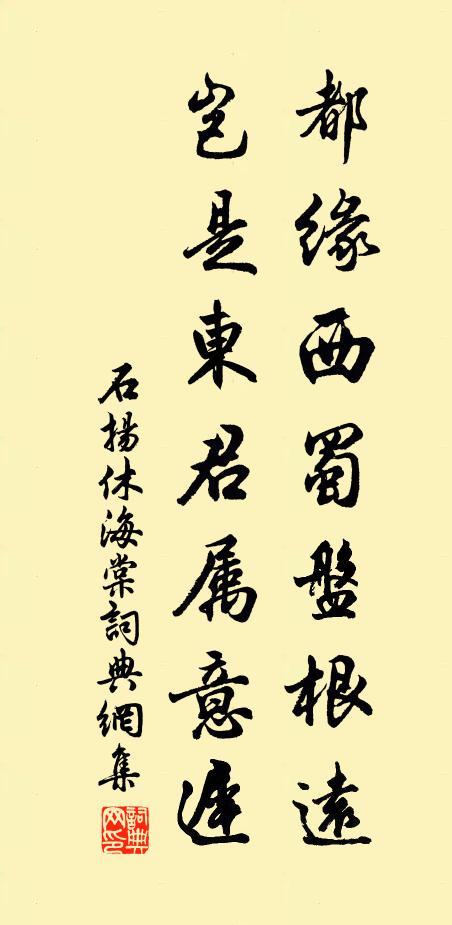 都緣西蜀盤根遠
豈是東君属意遲
石揚休海棠詞典網集
詞典网印